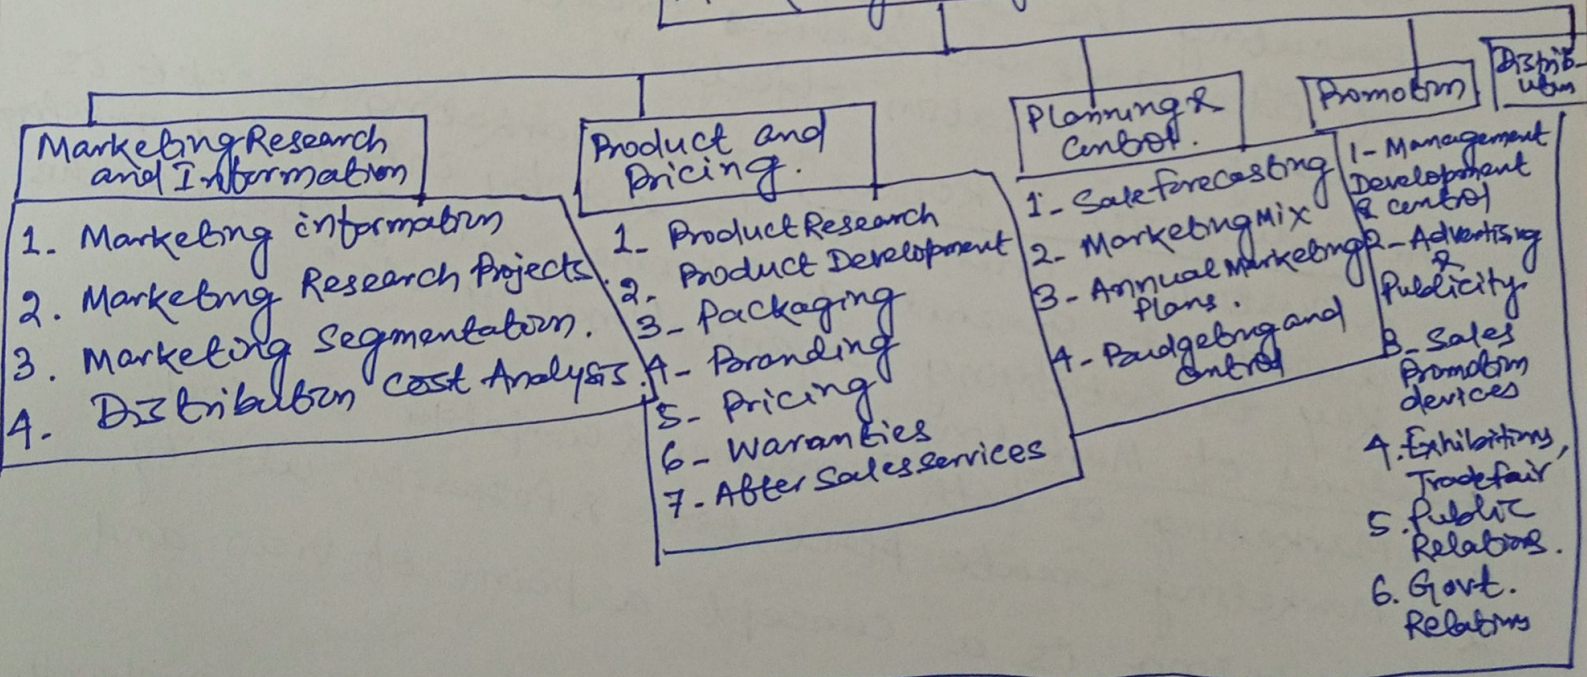 Marketing Research
and Information
1. Marketing information
2. Marketing Research Projects.
3. Marketing Segmentation.
4. Distribution Cost Analysis.
Product and
Pricing.
1- Product Research
2. Product Development
3- Packaging
4- Branding
5- Pricing
6- Waranties
7- After Sales services
Planning &
Control.
1- Sale forecasting
2- Marketing Mix
3- Annual Marketing
Plans.
4- Budgeting and
Control
Promotion
1- Management
Development
& control
2- Advertising
&
Publicity
3- Sales
Promotion
devices
4. Exhibitions,
Trade fair
5. Public
Relations.
6. Govt.
Relations
Distrib-
ution